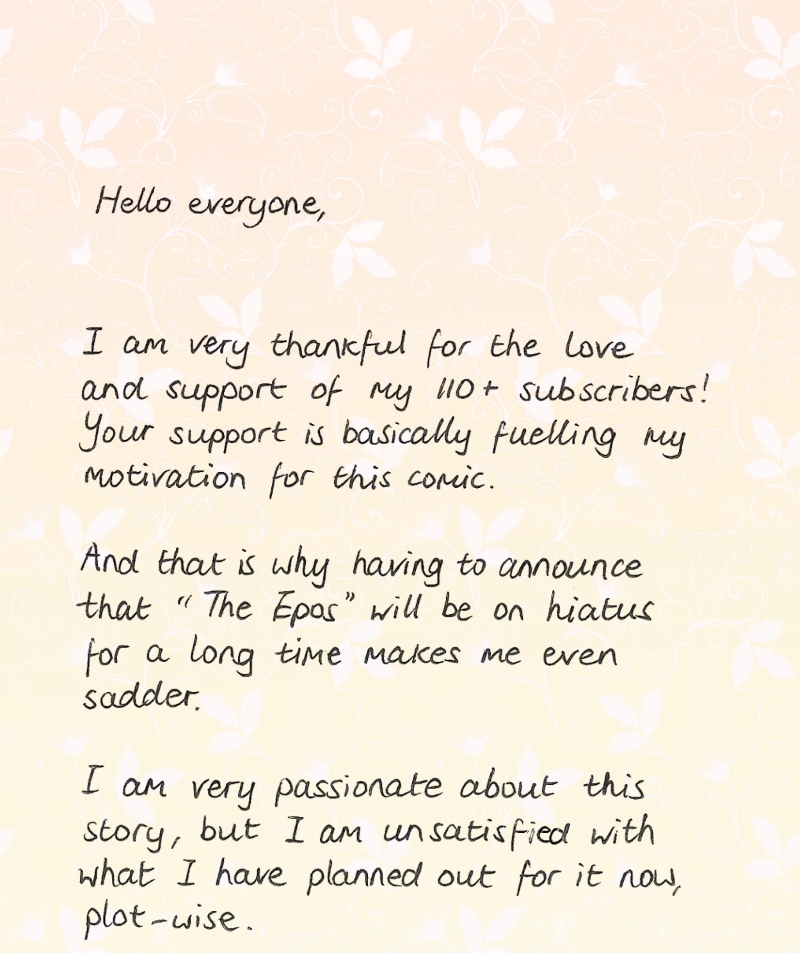 Hello everyone,
I am very thankful for the love
and support of my 110+ subscribers!
Your support is basically fuelling my
motivation for this comic.
And that is why having to announce
that "The Epos" will be on hiatus
for a long time makes me even
sadder.
I am very passionate about this
story, but I am unsatisfied with
what I have planned out for it now,
plot-wise.